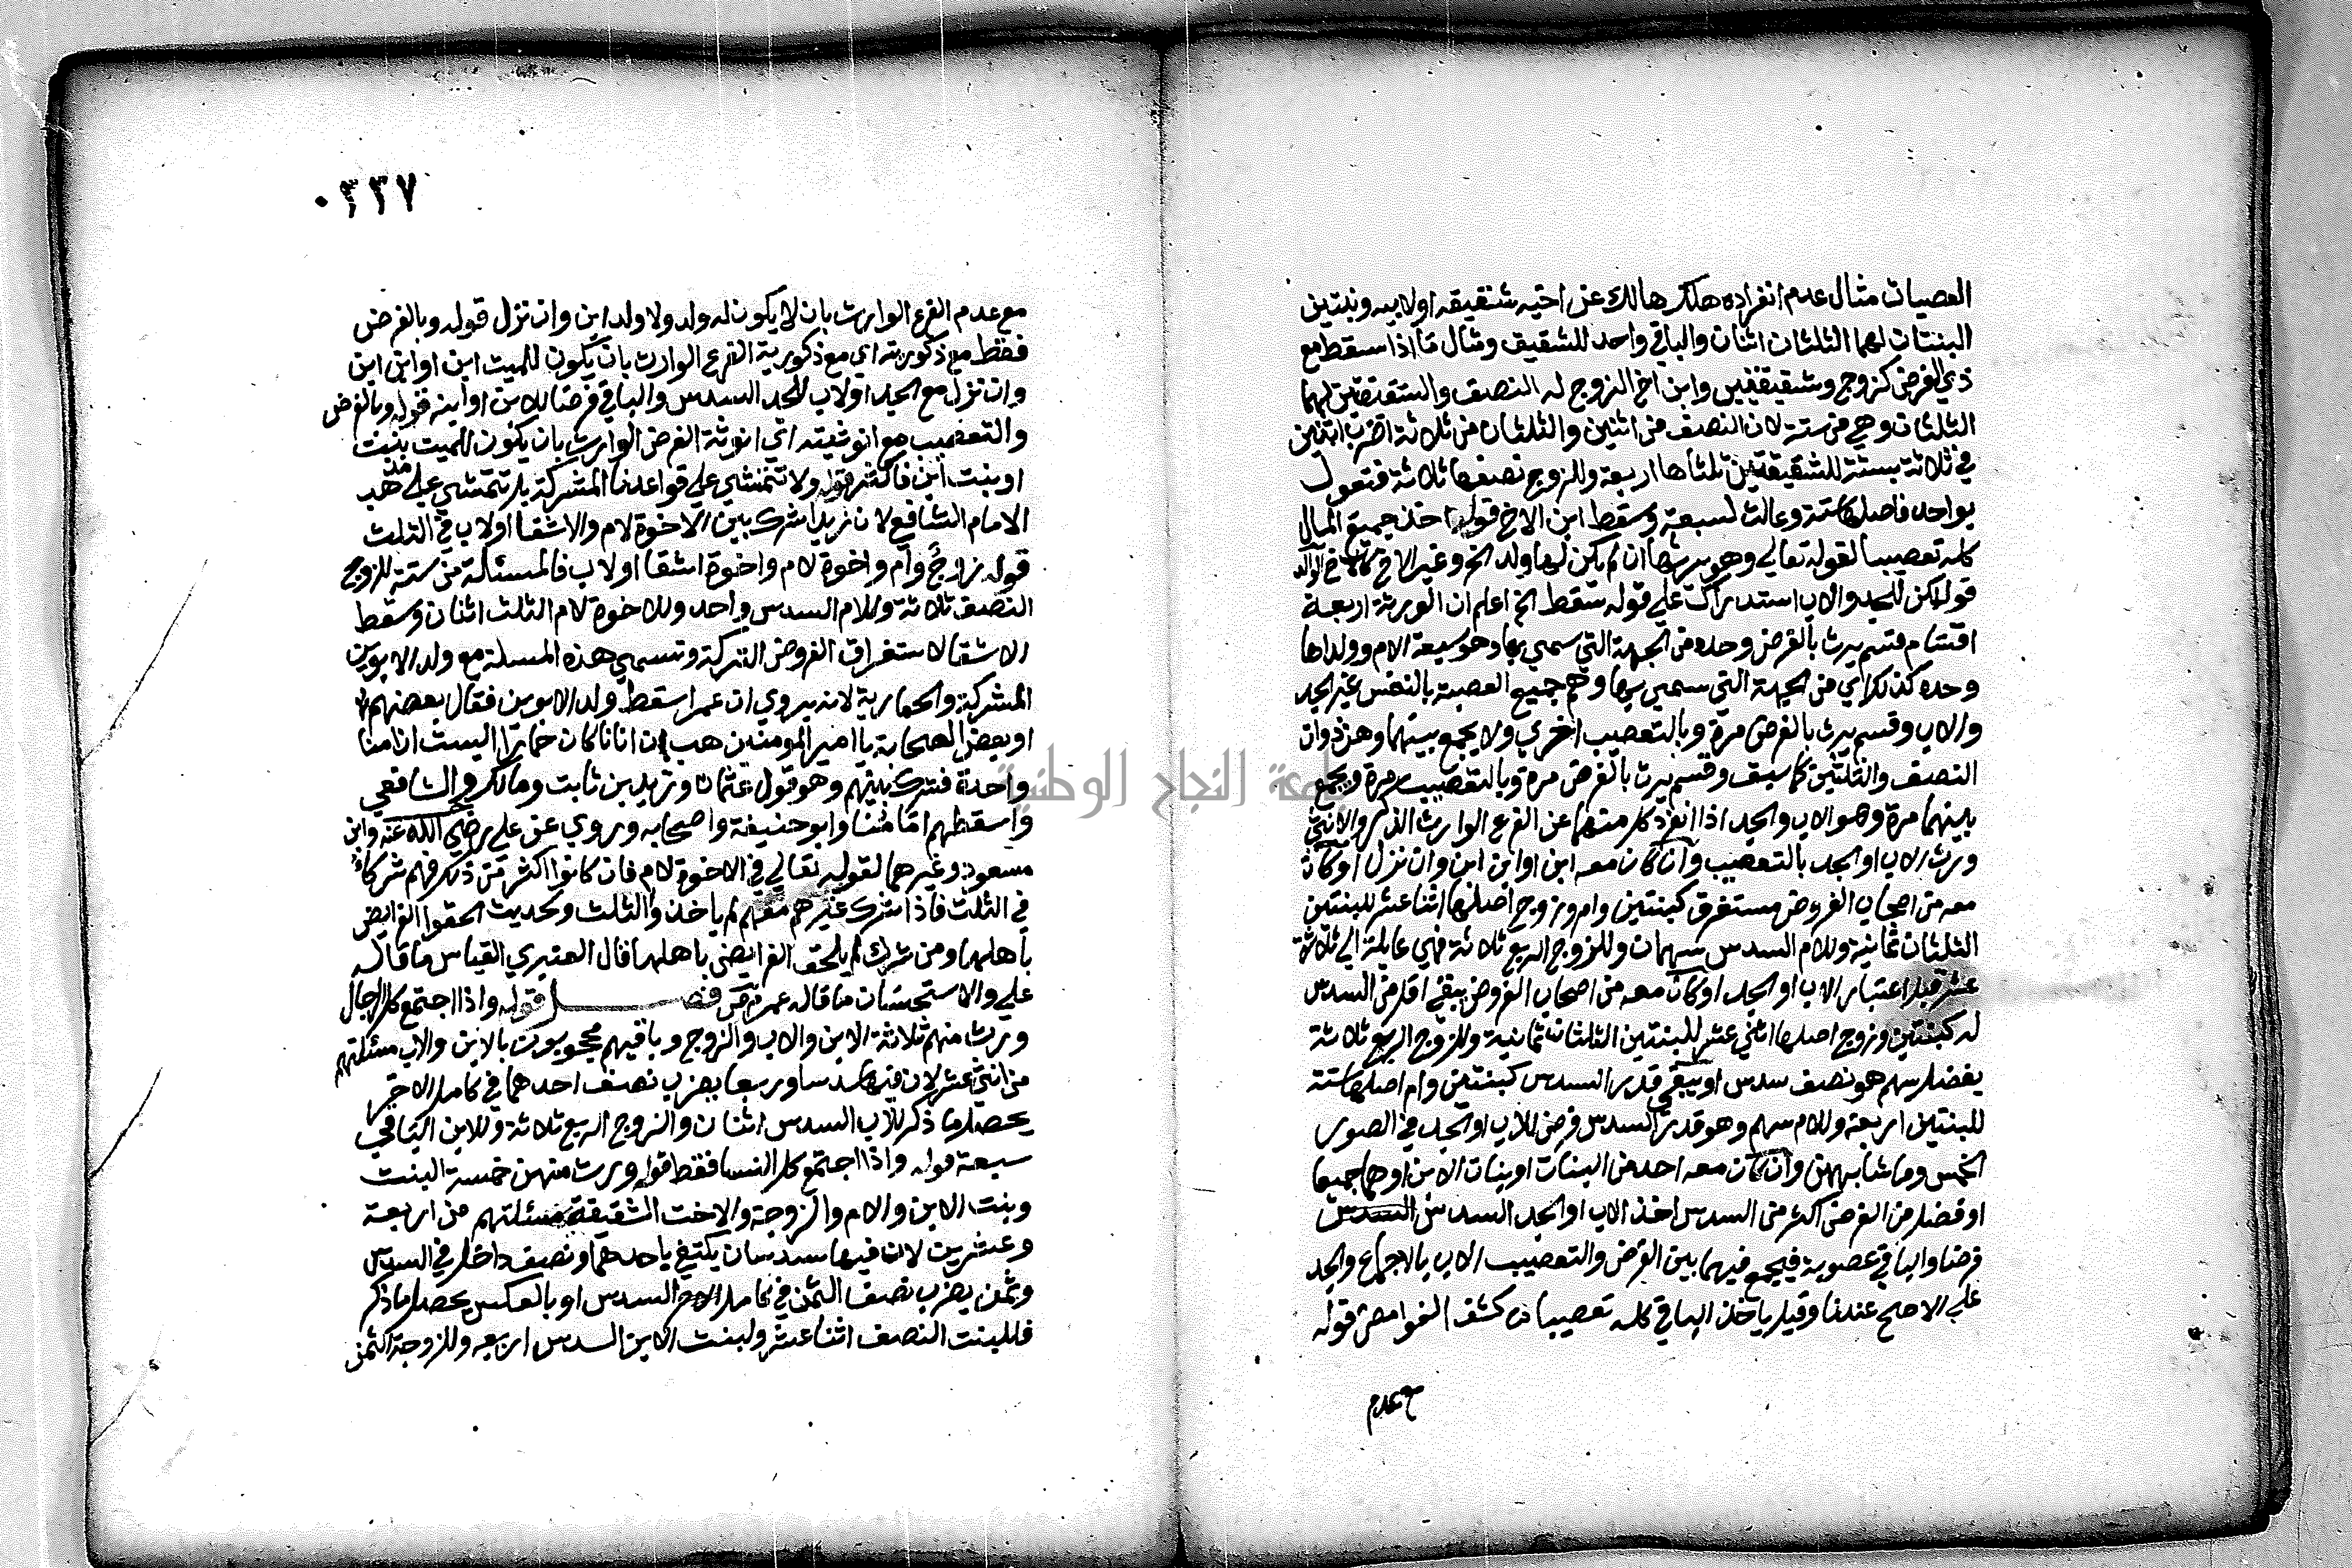 العصبات مثال عدم انفراده هلك هالك عن اخيه شقيقه او لابيه وبنتين
البنتان لهما الثلثان اثنان والباقي واحد للشقيق ومثال ما اذا سقط مع
ذي الفرض كزوج وشقيقتين وابن اخ الزوج له النصف والشقيقتين لهما
الثلثان وهي من ستة لان النصف من اثنين والثلثان من ثلاثة اضرب اثنين
في ثلاثة بستة للشقيقتين ثلثاها اربعة وللزوج نصفها ثلاثة فتعول
بواحد فاصلها ستة وعالت لسبعة وسقط ابن الاخ قوله اخذ جميع المال
كله تعصيبا لقوله تعالي وهو يرثها ان لم يكن لها ولد الخ وغير الاخ
قوله لكن للجد والاب استدراك علي قوله سقط الخ اعلم ان الورثة اربعة
اقسام قسم يرث بالفرض وحده من الجهة التي سمي بها وهو سبعة الام وولداها
وحده كذلك اي من الجهة التي سمي بها وهم جميع العصبة بالنفس غير الجد
والاب وقسم يرث بالفرض مرة وبالتعصيب اخري ولا يجمع بينهما وهن ذوات
النصف والثلثين كما سبق وقسم يرث بالفرض مرة وبالتعصيب مرة ويجمع
بينهما مرة وهو الاب والجد اذا انفرد كل منهما عن الفرع الوارث الذكر والانثي
ورث الاب او الجد بالتعصيب وان كان معه ابن او ابن ابن وان نزل او كان
معه من اصحاب الفروض مستغرق كبنتين وام وزوج اصلها اثنا عشر للبنتين
الثلثان ثمانية وللام السدس سهمان وللزوج الربع ثلاثة فهي عايلة الي ثلاثة
عشر قبل اعتبار الاب او الجد او كان معه من اصحاب الفروض يبقي اقل من السدس
له كبنتين وزوج اصلها اثني عشر للبنتين الثلثان ثمانية وللزوج الربع ثلاثة
يفضل سهم هو نصف سدس او يبقي قدر السدس كبنتين وام اصلها ستة
للبنتين اربعة وللام سهم وهو قدر السدس فرض للاب او الجد في الصور
الخمس وما شابههن وان كان معه احد من البنات او بنات الابن او هما جميعا
او فضل من الفرض اكثر من السدس اخذ الاب او الجد السدس السدس
فرضا والباقي عصوبة فيجمع فيهما بين الفرض والتعصيب الاب بالاجماع والجد
علي الاصح عندنا وقيل ياخذ الباقي كله تعصيبا من كشف الغوامض قوله
مع عدم
٠٣٣٧
مع عدم الفرع الوارث بان لا يكون له ولد ولا ولد ابن وان نزل قوله وبالفرض
فقط مع ذكوريته اي مع ذكورية الفرع الوارث بان يكون للميت ابن او ابن ابن
وان نزل مع الجد او لاب للجد السدس والباقي فرضا للابن او ابنه قوله وبالفرض
والتعصيب مع انوثيته اي انوثة الفرض الوارث بان يكون للميت بنت
او بنت ابن فاكثر قوله ولا تتمشي علي قواعدنا المشركة بل تتمشي علي مذهب
الامام الشافعي لان زيدا شرك بين الاخوة لام والاشقا او لاب في الثلث
قوله زوج وام واخوة لام واخوة اشقا او لاب فالمسئلة من ستة للزوج
النصف ثلاثة وللام السدس واحد وللاخوة لام الثلث اثنان وسقط
الاشقا لاستغراق الفروض التركة وتسمي هذه المسلة مع ولد الابوين
المشركة والحمارية لانه يروي ان عمر اسقط ولد الابوين فقال بعضهم
او بعض الصحابة يا امير المومنين هب ان ابانا كان حمارا اليست امنا
واحدة فشرك بينهم وهو قول عثمان وزيد بن ثابت ومالك والشافعي
واسقطهم امامنا وابو حنيفة واصحابه وروي عن علي رضي الله عنه وابن
مسعود وغيرهما لقوله تعالي في الاخوة لام فان كانوا اكثر من ذلك فهم شركاء
في الثلث فاذا شرك غيرهم معهم لم ياخذوا الثلث وحديث الحقوا الفرايض
باهلها ومن شرك لم يلحق الفرايض باهلها قال العنبري القياس ما قاله
علي والاستحسان ما قاله عمر فصل قوله واذا اجتمع كل الرجال
ورث منهم ثلاثة الابن والاب والزوج وباقيهم محجوبون بالابن والاب مسئلتهم
من اثني عشر لان فيها سدسا وربعا يضرب نصف احدهما في كامل الاخر
يحصل ما ذكر للاب السدس اثنان والزوج الربع ثلاثة وللابن الباقي
سبعة قوله واذا اجتمع كل النسا فقط قوله ورث منهن خمسة البنت
وبنت الابن والام والزوجة والاخت الشقيقة مسئلتهم من اربعة
وعشرين لان فيها سدسان يكتفي باحدهما ونصف داخل في السدس
وثمن يضرب نصف الثمن في كامل الاخر السدس او بالعكس يحصل ما ذكر
فللبنت النصف اثنا عشر ولبنت الابن السدس اربعة وللزوجة الثمن
جامعة النجاح الوطنية